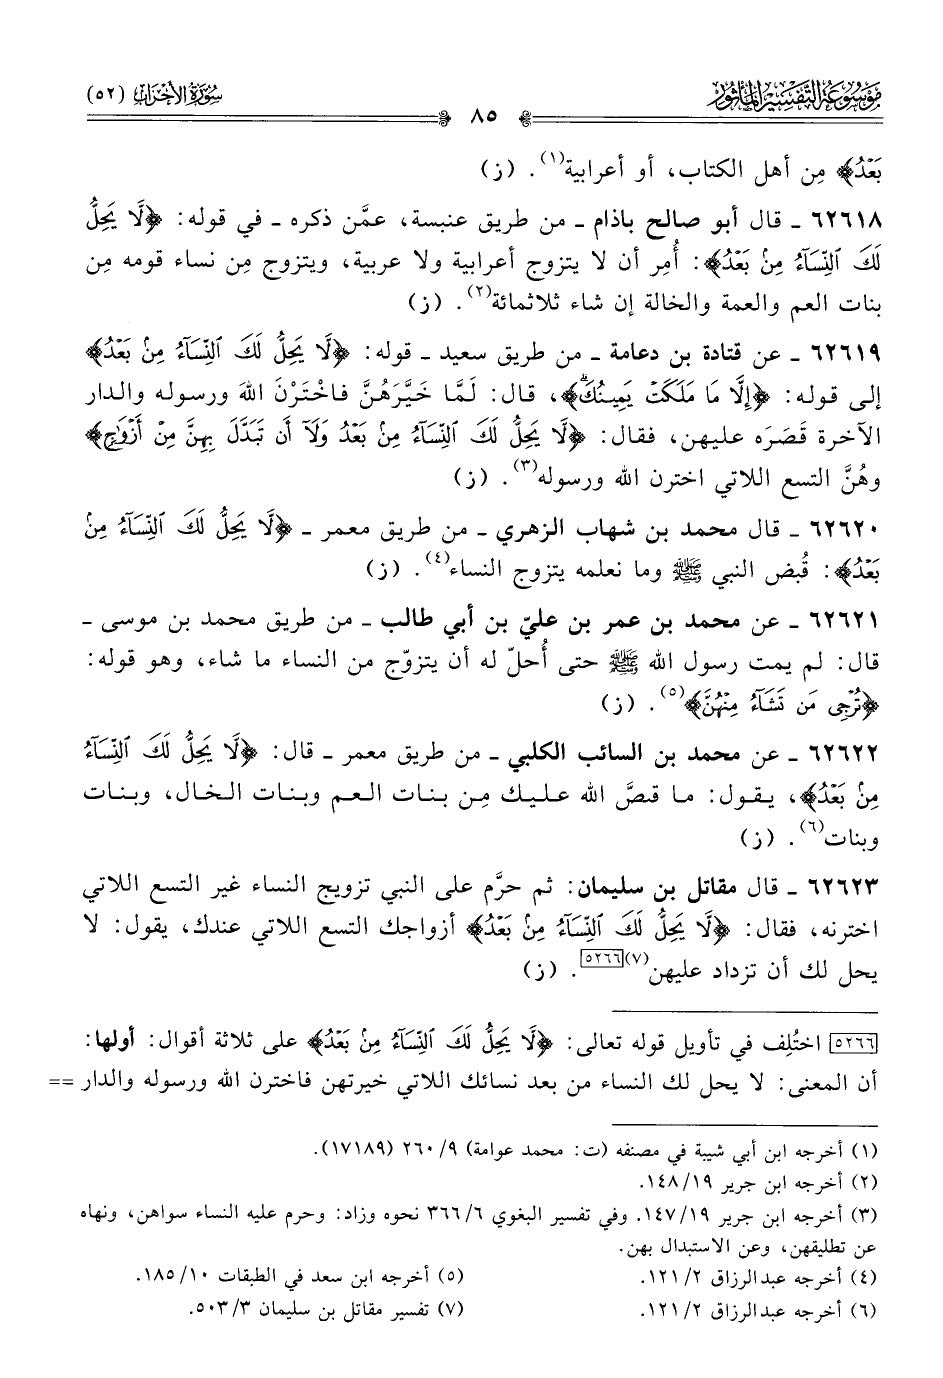 موسوعة التفسير المأثور
سورة الأحزاب (٥٢)
٨٥
بَعْدُ﴾ مِن أهل الكتاب، أو أعرابية(١). (ز)
٦٢٦١٨ ـ قال أبو صالح باذام ـ من طريق عنبسة، عمَّن ذكره ـ في قوله: ﴿لَّا يَحِلُّ
لَكَ ٱلنِّسَآءُ مِنۢ بَعْدُ﴾: أُمِر أن لا يتزوج أعرابية ولا عربية، ويتزوج مِن نساء قومه مِن
بنات العم والعمة والخالة إن شاء ثلاثمائة(٢). (ز)
٦٢٦١٩ ـ عن قتادة بن دعامة ـ من طريق سعيد ـ قوله: ﴿لَّا يَحِلُّ لَكَ ٱلنِّسَآءُ مِنۢ بَعْدُ﴾
إلى قوله: ﴿إِلَّا مَا مَلَكَتْ يَمِينُكَۗ﴾، قال: لَمَّا خَيَّرَهُنَّ فاخْتَرْنَ اللهَ ورسوله والدار
الآخرة قَصَرَه عليهن، فقال: ﴿لَّا يَحِلُّ لَكَ ٱلنِّسَآءُ مِنۢ بَعْدُ وَلَآ أَن تَبَدَّلَ بِهِنَّ مِنْ أَزْوَٰجٍ﴾
وهُنَّ التسع اللاتي اخترن الله ورسوله(٣). (ز)
٦٢٦٢٠ ـ قال محمد بن شهاب الزهري ـ من طريق معمر ـ ﴿لَّا يَحِلُّ لَكَ ٱلنِّسَآءُ مِنۢ
بَعْدُ﴾: قُبض النبي ﷺ وما نعلمه يتزوج النساء(٤). (ز)
٦٢٦٢١ ـ عن محمد بن عمر بن عليّ بن أبي طالب ـ من طريق محمد بن موسى ـ
قال: لم يمت رسول الله ﷺ حتى أُحلّ له أن يتزوّج من النساء ما شاء، وهو قوله:
﴿تُرْجِى مَن تَشَآءُ مِنْهُنَّ﴾(٥). (ز)
٦٢٦٢٢ ـ عن محمد بن السائب الكلبي ـ من طريق معمر ـ قال: ﴿لَّا يَحِلُّ لَكَ ٱلنِّسَآءُ
مِنۢ بَعْدُ﴾، يقول: ما قصَّ الله عليك مِن بنات العم وبنات الخال، وبنات
وبنات(٦). (ز)
٦٢٦٢٣ ـ قال مقاتل بن سليمان: ثم حرَّم على النبي تزويج النساء غير التسع اللاتي
اخترنه، فقال: ﴿لَّا يَحِلُّ لَكَ ٱلنِّسَآءُ مِنۢ بَعْدُ﴾ أزواجك التسع اللاتي عندك، يقول: لا
يحل لك أن تزداد عليهن(٧)[٥٢٦٦]. (ز)
[٥٢٦٦] اختُلِف في تأويل قوله تعالى: ﴿لَّا يَحِلُّ لَكَ ٱلنِّسَآءُ مِنۢ بَعْدُ﴾ على ثلاثة أقوال: أولها:
أن المعنى: لا يحل لك النساء من بعد نسائك اللاتي خيرتهن فاخترن الله ورسوله والدار ==
(١) أخرجه ابن أبي شيبة في مصنفه (ت: محمد عوامة) ٩/ ٢٦٠ (١٧١٨٩).
(٢) أخرجه ابن جرير ١٩/ ١٤٨.
(٣) أخرجه ابن جرير ١٩/ ١٤٧. وفي تفسير البغوي ٦/ ٣٦٦ نحوه وزاد: وحرم عليه النساء سواهن، ونهاه
عن تطليقهن، وعن الاستبدال بهن.
(٤) أخرجه عبدالرزاق ٢/ ١٢١.
(٥) أخرجه ابن سعد في الطبقات ١٠/ ١٨٥.
(٦) أخرجه عبدالرزاق ٢/ ١٢١.
(٧) تفسير مقاتل بن سليمان ٣/ ٥٠٣.